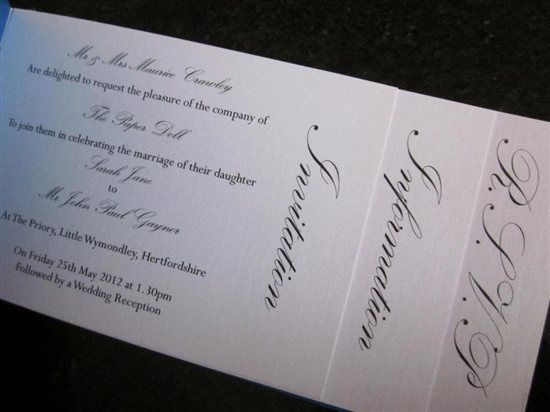 Mr & Mrs Maurice Crawley
Are delighted to request the pleasure of the company of
The Paper Doll
To join them in celebrating the marriage of their daughter
Sarah Jane
to
Mr John Paul Gaynor
At The Priory, Little Wymondley, Hertfordshire
On Friday 25th May 2012 at 1.30pm
Followed by a Wedding Reception
Invitation
Information
R.S.V.P